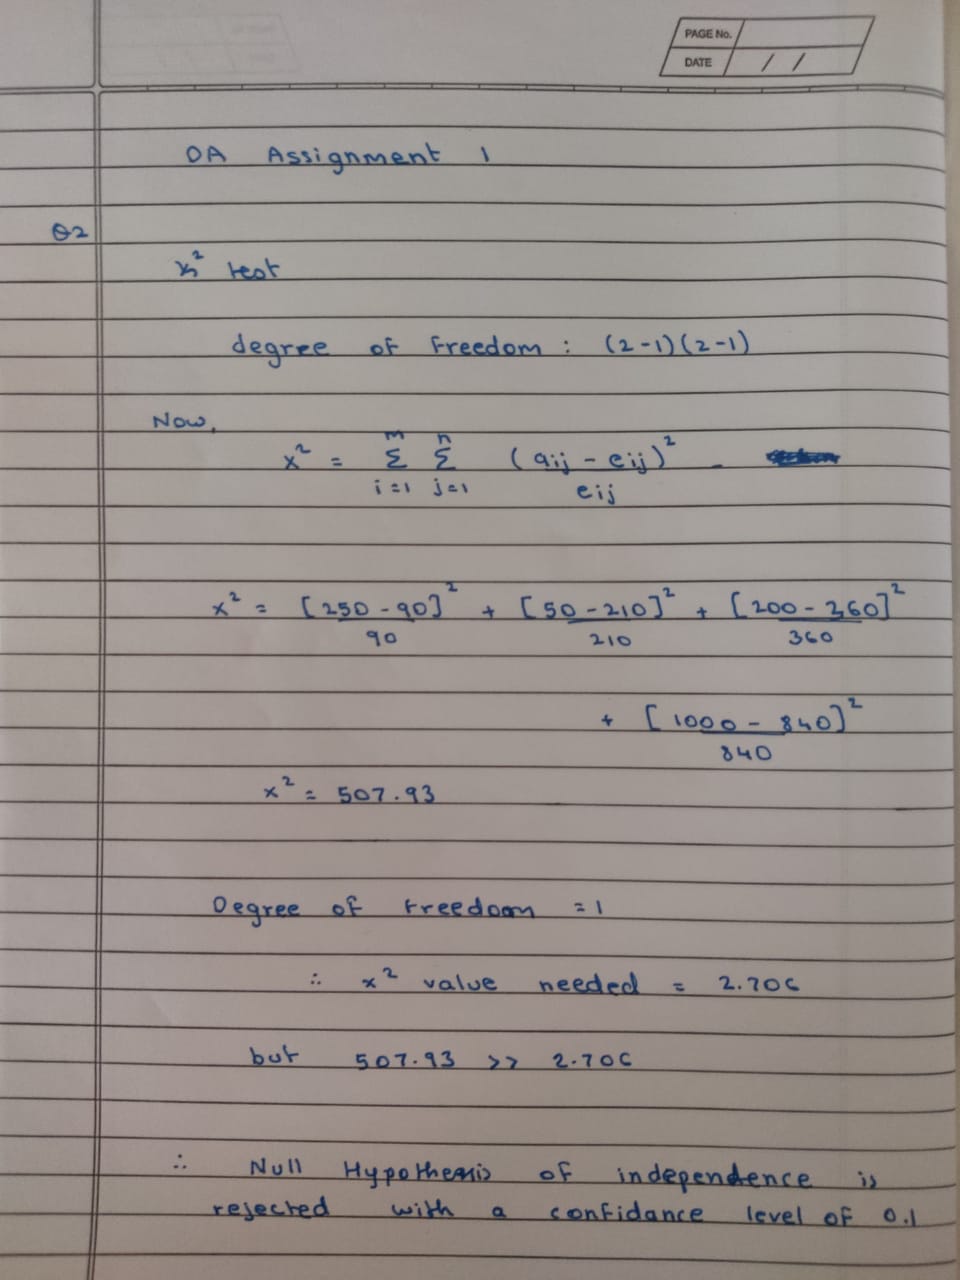 PAGE No.
DATE / /
DA Assignment 1
Q2
x² test
degree of freedom : (2-1)(2-1)
Now,
x² = m Σ i=1 n Σ j=1 (aij - eij)² / eij
x² = [250 - 90]² / 90 + [50 - 210]² / 210 + [200 - 360]² / 360
+ [1000 - 840]² / 840
x² = 507.93
Degree of freedoom = 1
∴ x² value needed = 2.706
but 507.93 >> 2.706
∴ Null Hypothesis of independence is
rejected with a confidance level of 0.1